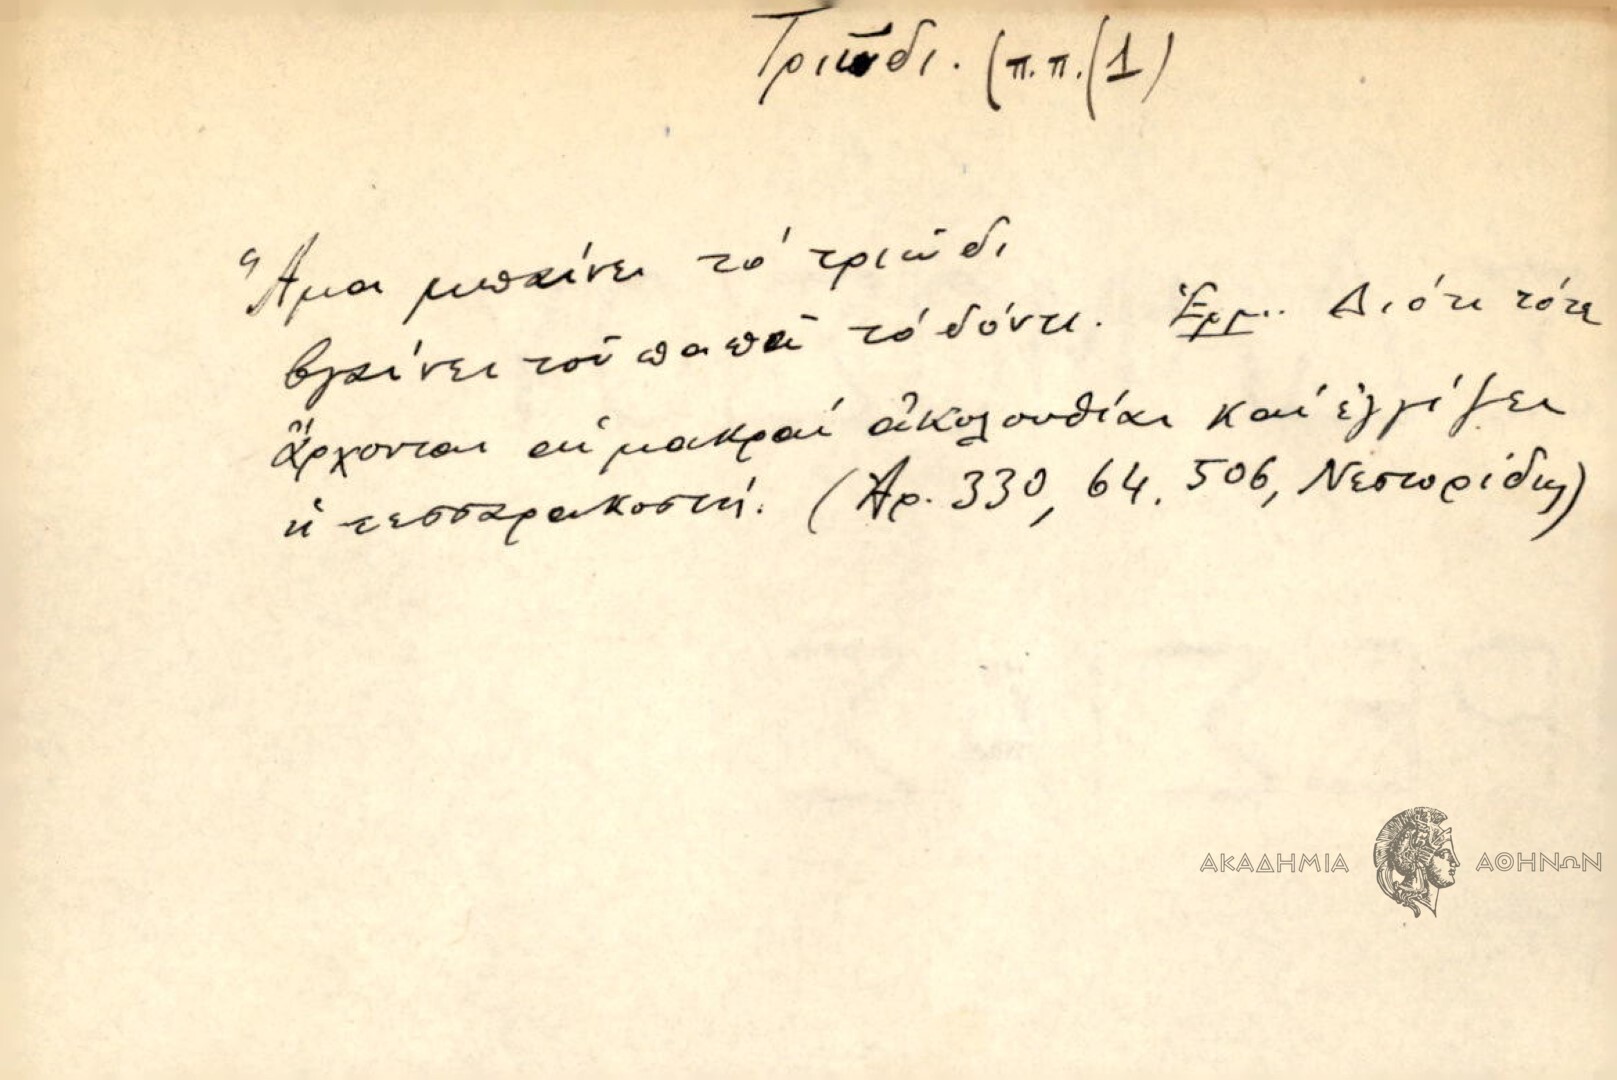 Τριῶδι. (π.π.(1)
Ἅμα μπαίνει τό τριῶδι
βγαίνει τοῦ παπᾶ τό δόντι. Ἑρμ. Διότι τότε
ἄρχονται αἱ μακραί ἀκολουθίαι καί ἐγγίζει
ἡ τεσσαρακοστή. (Ἀρ. 330, 64. 506, Νεστορίδης)
ΑΚΑΔΗΜΙΑ ΑΘΗΝΩΝ